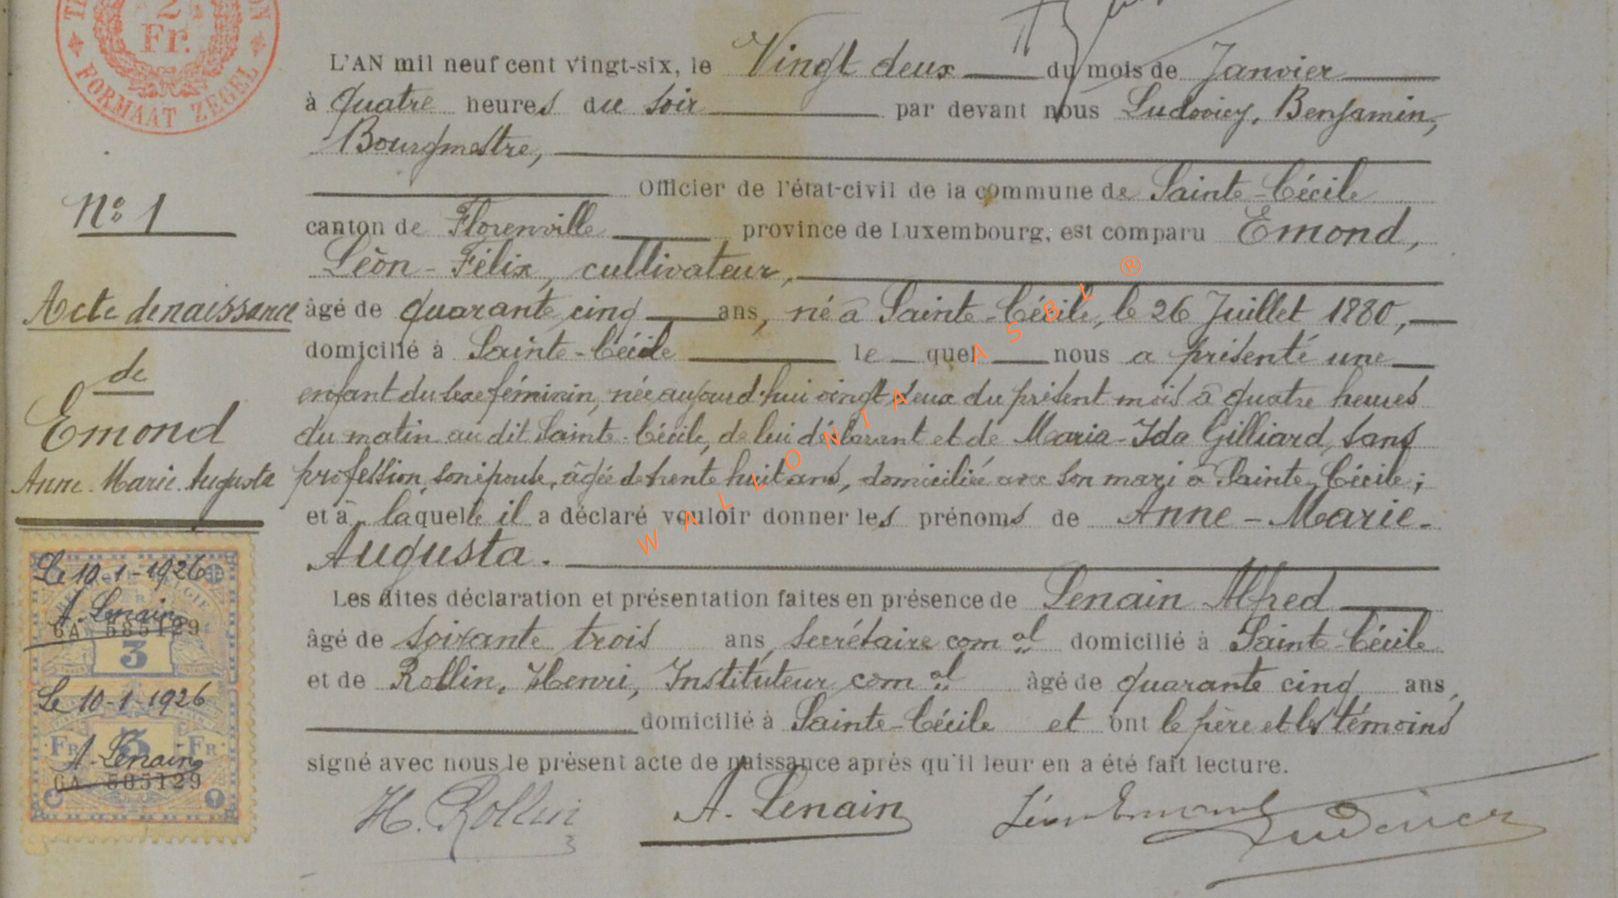 2
Fr.
FORMAAT ZEGEL
L'AN mil neuf cent vingt-six, le Vingt deux du mois de Janvier
à quatre heures du soir par devant nous Ludovicy, Benjamin,
Bourgmestre,
Officier de l'état-civil de la commune de Sainte-Cécile
canton de Florenville province de Luxembourg, est comparu Emond,
Léon-Félix, cultivateur,
âgé de quarante cinq ans, né à Sainte-Cécile, le 26 Juillet 1880,
domicilié à Sainte-Cécile le quel nous a présenté une
enfant du sexe féminin, née aujourd'hui vingt deux du présent mois à quatre heures
du matin au dit Sainte-Cécile, de lui déclarant et de Maria-Ida Gilliard, sans
profession, son épouse, âgée de trente huit ans, domiciliée avec son mari à Sainte-Cécile;
et à laquelle il a déclaré vouloir donner les prénoms de Anne-Marie-
Augusta.
Les dites déclaration et présentation faites en présence de Lenain Alfred
âgé de soixante trois ans, secrétaire com al domicilié à Sainte Cécile
et de Rollin, Henri, Instituteur com al âgé de quarante cinq ans,
domicilié à Sainte-Cécile et ont le père et les témoins
signé avec nous le présent acte de naissance après qu'il leur en a été fait lecture.
H. Rollin A. Lenain Léon Emond Ludovicy
N° 1
Acte de naissance
de
Emond
Anne-Marie-Augusta
Le 10-1-1926
A. Lenain
GA 585129
3
Le 10-1-1926
Fr 3 Fr
A. Lenain
GA 585129
WALLONIA ASBL ®